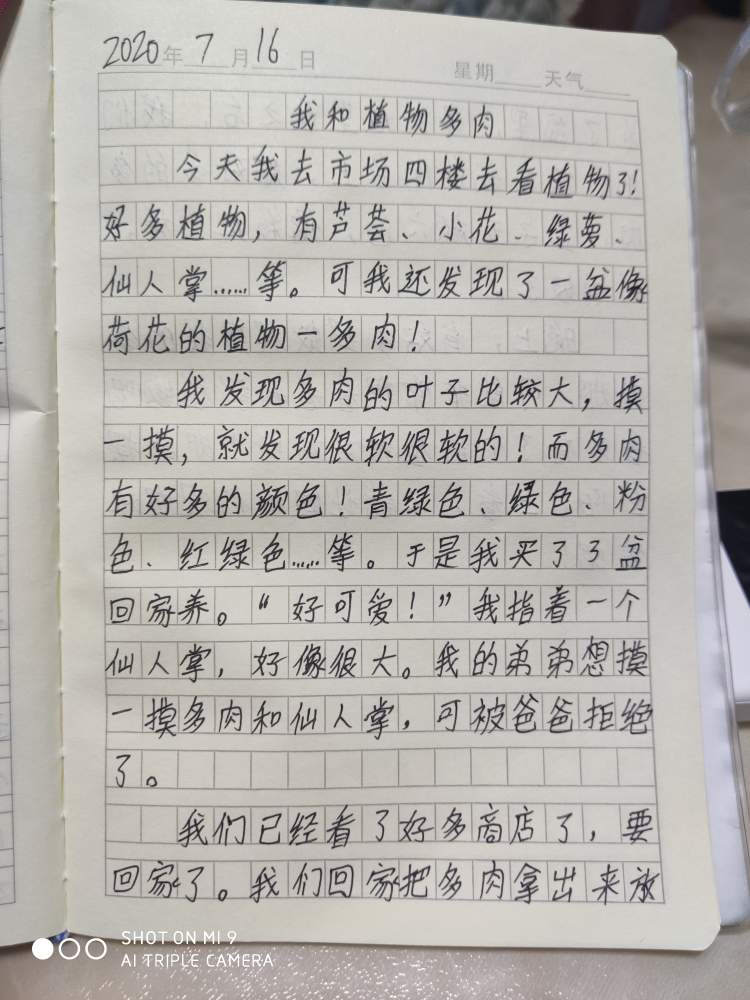 2020年7月16日 星期 天气
我和植物多肉
今天我去市场四楼去看植物了!
好多植物，有芦荟、小花、绿萝、
仙人掌……等。可我还发现了一盆像
荷花的植物—多肉！
我发现多肉的叶子比较大，摸
一摸，就发现很软很软的！而多肉
有好多的颜色！青绿色、绿色、粉
色、红绿色……等。于是我买了3盆
回家养。“好可爱！”我指着一个
仙人掌，好像很大。我的弟弟想摸
一摸多肉和仙人掌，可被爸爸拒绝
了。
我们已经看了好多商店了，要
回家了。我们回家把多肉拿出来放
SHOT ON MI 9
AI TRIPLE CAMERA